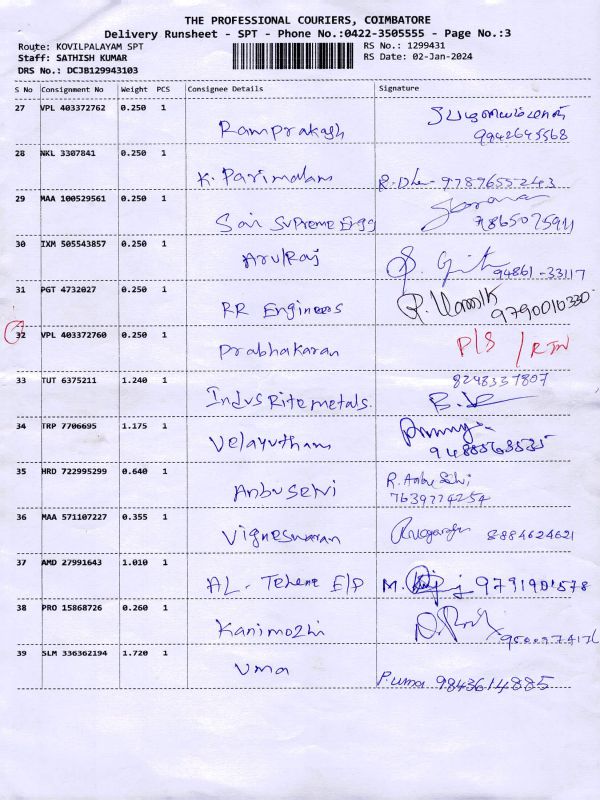 THE PROFESSIONAL COURIERS, COIMBATORE
Delivery Runsheet - SPT - Phone No.:0422-3505555 - Page No.:3
Route: KOVILPALAYAM SPT RS No.: 1299431
Staff: SATHISH KUMAR RS Date: 02-Jan-2024
DRS No.: DCJB129943103
S No Consignment No Weight PCS Consignee Details Signature
27 VPL 403372762 0.250 1 Ramprakash
9942645568
28 NKL 3307841 0.250 1 K. Parimalam 9789655243
29 MAA 100529561 0.250 1 Sai Supreme Engg 7865075911
30 IXM 505543857 0.250 1 Arulraj 94861-33117
31 PGT 4732027 0.250 1 RR Engineers 9790010330
32 VPL 403372760 0.250 1 Prabhakaran P/S / RTN
33 TUT 6375211 1.240 1 Indus Rite metals. 8248337807
34 TRP 7706695 1.175 1 Velayutham 9488563535
35 HRD 722995299 0.640 1 Anbuselvi R. Anbu Selvi
7639274254
36 MAA 571107227 0.355 1 Vigneswaran 8884624621
37 AMD 27991643 1.010 1 AL- E/P M.
38 PRO 15868726 0.260 1 Kanimozhi
39 SLM 336362194 1.720 1 Uma P.uma 9843614885